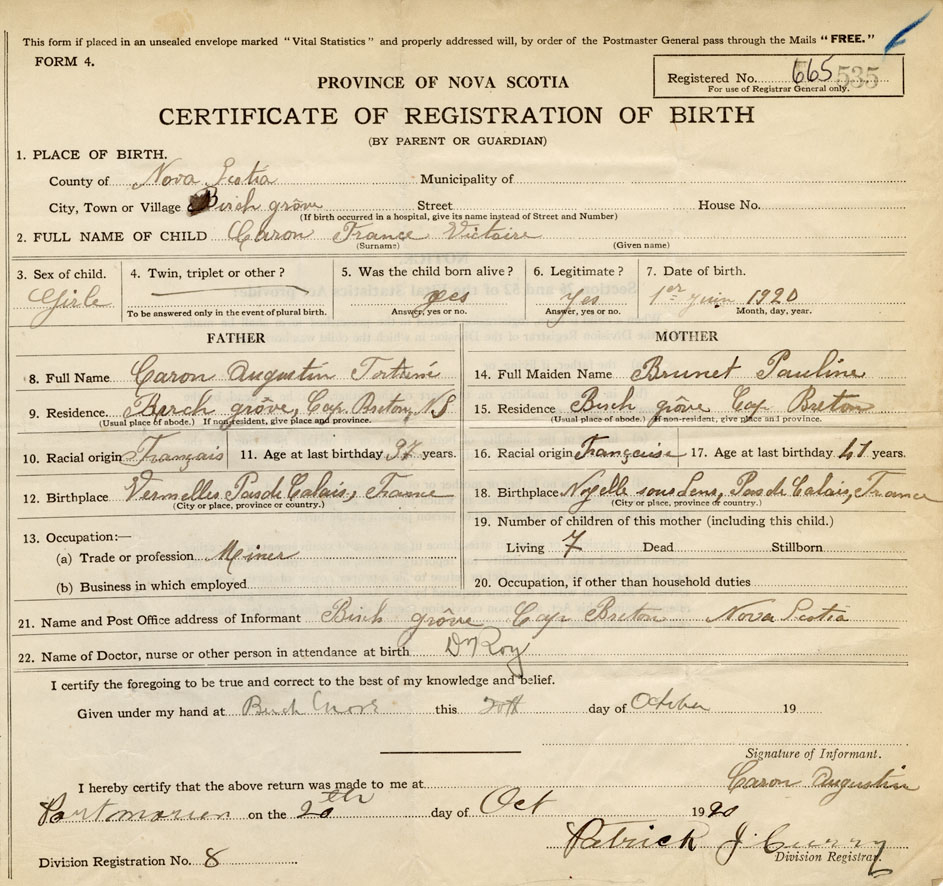 This form if placed in an unsealed envelope marked "Vital Statistics" and properly addressed will, by order of the Postmaster General pass through the Mails "FREE."
FORM 4.
PROVINCE OF NOVA SCOTIA
Registered No. 665 535
For use of Registrar General only.
CERTIFICATE OF REGISTRATION OF BIRTH
(BY PARENT OR GUARDIAN)
1. PLACE OF BIRTH.
County of Nova Scotia Municipality of
City, Town or Village Birch grôve Street House No.
(If birth occurred in a hospital, give its name instead of Street and Number)
2. FULL NAME OF CHILD Caron France Victoire
(Surname) (Given name)
3. Sex of child. 4. Twin, triplet or other? 5. Was the child born alive? 6. Legitimate? 7. Date of birth.
Girle yes Yes 1er juin 1920
To be answered only in the event of plural birth. Answer, yes or no. Answer, yes or no. Month, day, year.
FATHER MOTHER
8. Full Name Caron Augustin 14. Full Maiden Name Brunet Pauline
9. Residence. Birch grôve, Cap Breton, NS 15. Residence Birch grôve Cap Breton
(Usual place of abode.) If non-resident, give place and province. (Usual place of abode.) If non-resident, give place and province.
10. Racial origin Français 11. Age at last birthday 37 years. 16. Racial origin Française 17. Age at last birthday 41 years.
12. Birthplace Vermelles Pas de Calais, France 18. Birthplace Noyelle sous Lens, Pas de Calais, France
(City or place, province or country.) (City or place, province or country.)
19. Number of children of this mother (including this child.)
13. Occupation:—
(a) Trade or profession Miner Living 7 Dead Stillborn
(b) Business in which employed 20. Occupation, if other than household duties
21. Name and Post Office address of Informant Birch grôve Cap Breton Nova Scotia
22. Name of Doctor, nurse or other person in attendance at birth Dr Roy
I certify the foregoing to be true and correct to the best of my knowledge and belief.
Given under my hand at Birch Grove this 20th day of October 19
Signature of Informant.
Caron Augustin
I hereby certify that the above return was made to me at
Portmorien on the 20th day of Oct 1920
Patrick J. Curry
Division Registrar.
Division Registration No. 8